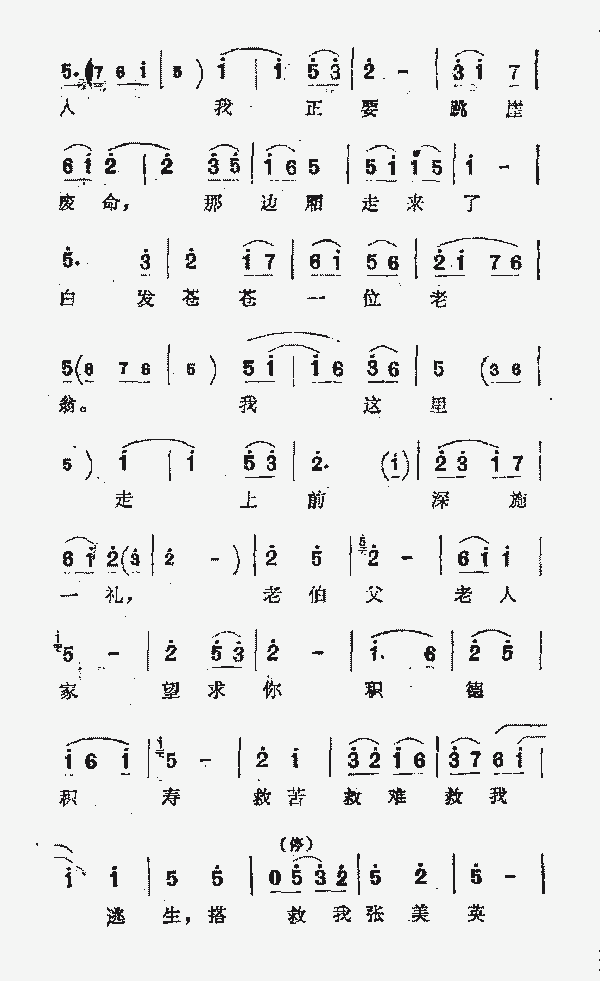 5. 7 6 i | 5 ) i | i 5 3 | 2 - | 3 i 7 |
人 我 正 要 跳 崖
6 i 2 | 2 3 5 | i 6 5 | 5 i i 5 | i - |
废 命, 那 边 厢 走 来 了
5. 3 | 2 i 7 | 6 i 5 6 | 2 i 7 6 |
白 发 苍 苍 一 位 老
5 ( 6 7 6 | 5 ) 5 i | i 6 3 6 | 5 ( 3 6 |
翁。 我 这 里
5 ) i | i 5 3 | 2. ( i ) | 2 3 i 7 |
走 上 前 深 施
6 i 2 ( 3 | 2 - ) | 2 5 | 5 2 - | 6 i i |
一 礼, 老 伯 父 老 人
i 5 - | 2 5 3 | 2 - | i. 6 | 2 5 |
家 望 求 你 积 德
i 6 i | i 5 - | 2 i | 3 2 i 6 | 3 7 6 i |
积 寿 救 苦 救 难 救 我
(停)
i i | 5 5 | 0 5 3 2 | 5 2 | 5 - |
逃 生, 搭 救 我 张 美 英